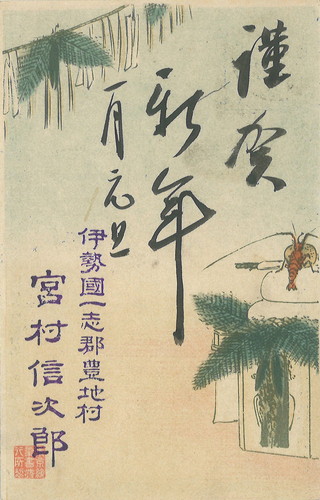 謹賀
新年
一月元旦
伊勢國一志郡豊地村
宮村信次郎